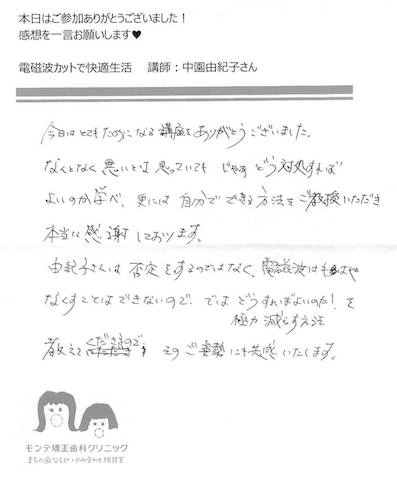 本日はご参加ありがとうございました！
感想を一言お願いします♥
電磁波カットで快適生活　講師：中園由紀子さん
今日はとてもためになる講座をありがとうございました。
なんとなく悪いとは思っていても じゃあ どう対処すれば
よいのか学べ、更には 自分で できる 方法を ご教授いただき
本当に 感謝しております。
由紀子さんは 否定をするのではなく、電磁波は もはや
なくすことは できないので、では どうすればよいのか！を
極力 減らす方法
教えて くださるので その ご姿勢にも共感いたします。
モンテ矯正歯科クリニック
まちの歯ならび・かみ合わせ相談室